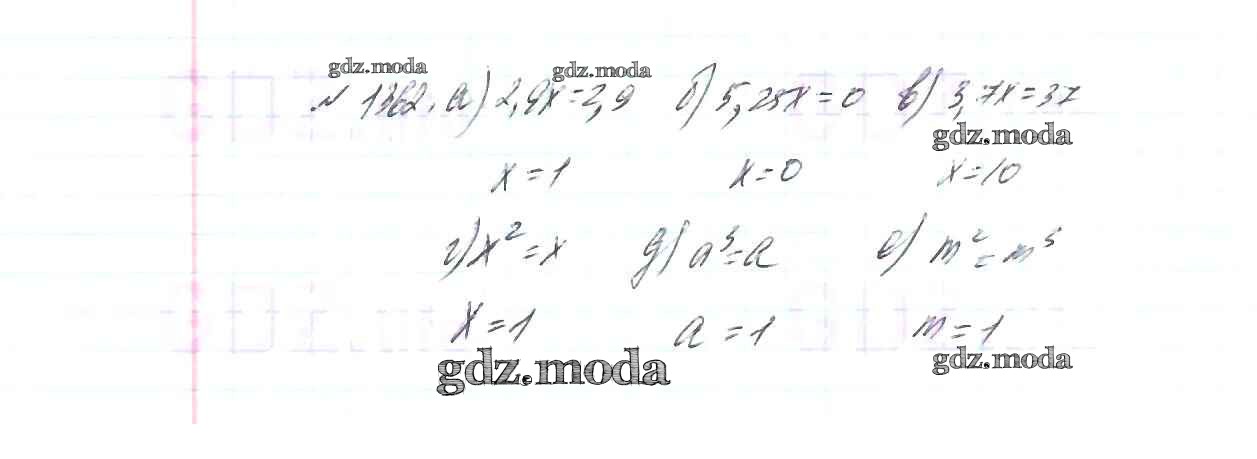 gdz.moda gdz.moda
№ 1362. а) 2,9x=2,9 б) 5,25x=0 в) 3,7x=37
gdz.moda
x=1 x=0 x=10
г) x²=x д) a³=a е) m²=m³
x=1 a=1 m=1
gdz.moda gdz.moda